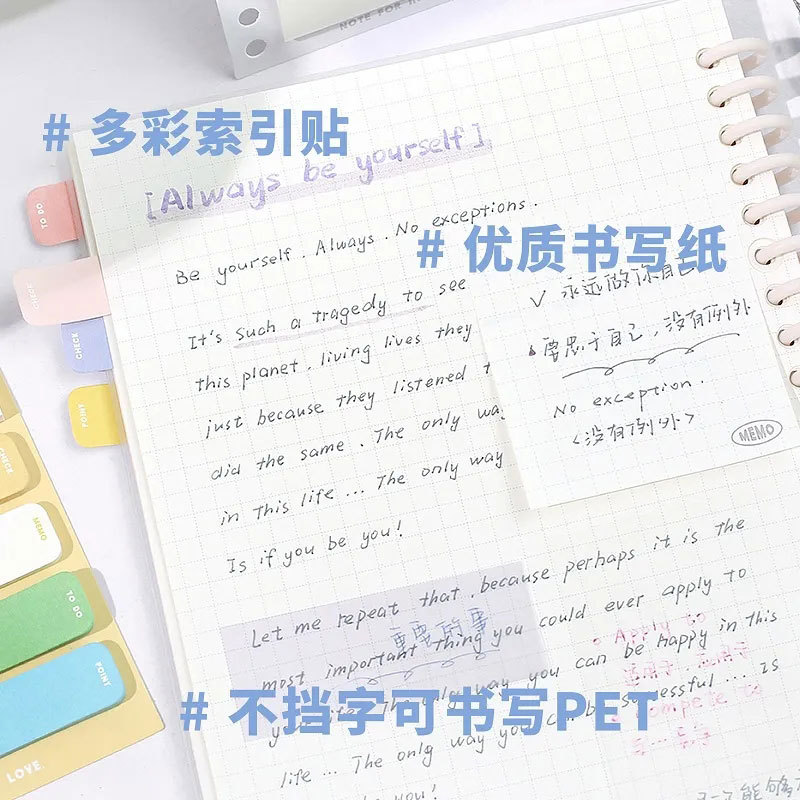 NOTE FOR
# 多彩索引贴
[Always be yourself]
TO DO
CHECK
CHECK
POINT
Be yourself. Always. No exceptions.
# 优质书写纸
It's such a tragedy to see
this planet, living lives they
just because they listened
did the same. The only way
in this life ... The only way
Is if you be you!
永远做你自己
要忠于自己,没有例外
No exception.
<没有例外>
MEMO
CHECK
MEMO
TO DO
POINT
LOVE
Let me repeat that, because perhaps it is the
重要的事
most important thing you could ever apply to
Apply to
you can be happy in this
# 不挡字可书写PET
successful ... is
compete to
life ... The only way you
you!